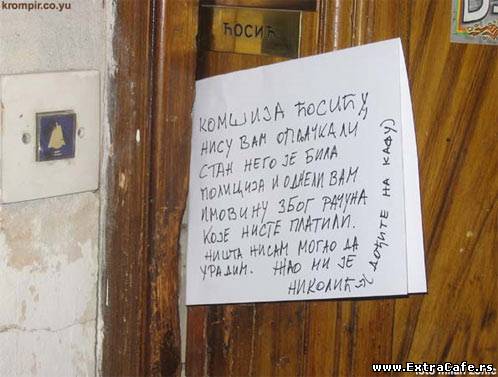 krompir.co.yu
ЋОСИЋ
КОМШИЈА ЋОСИЋУ,
НИСУ ВАМ ОПЉАЧКАЛИ
СТАН НЕГО ЈЕ БИЛА
ПОЛИЦИЈА И ОДНЕЛИ ВАМ
ИМОВИНУ ЗБОГ РАЧУНА
КОЈЕ НИСТЕ ПЛАТИЛИ.
НИШТА НИСАМ МОГАО ДА
УРАДИМ. ЖАО МИ ЈЕ
НИКОЛИЋ
ДОЂИТЕ НА КАФУ)
www.ExtraCafe.rs